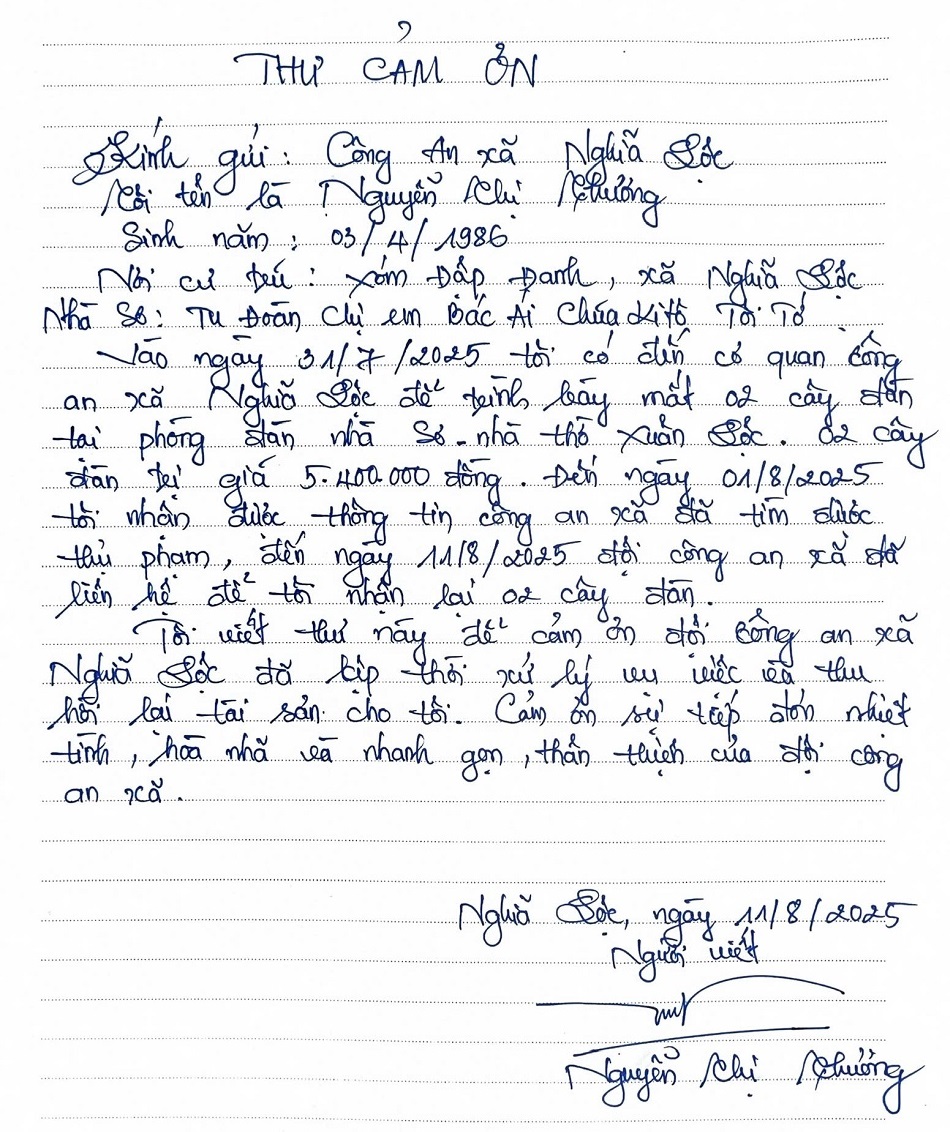 THƯ CẢM ƠN
Kính gửi: Công An xã Nghĩa Lộc
Tôi tên là Nguyễn Thị Phương
Sinh năm: 03/4/1986
Nơi cư trú: xóm Đập Đanh, xã Nghĩa Lộc
Nhà Sơ: Tu Đoàn Chị em Bác Ái Chúa Kitô Tôi Tớ
Vào ngày 31/7/2025 tôi có đến cơ quan công
an xã Nghĩa Lộc để trình bày mất 02 cây đàn
tại phòng đàn nhà Sơ - nhà thờ Xuân Lộc. 02 cây
đàn trị giá 5.400.000 đồng. Đến ngày 01/8/2025
tôi nhận được thông tin công an xã đã tìm được
thủ phạm, đến ngày 11/8/2025 đội công an xã đã
liên hệ để tôi nhận lại 02 cây đàn.
Tôi viết thư này để cảm ơn đội Công an xã
Nghĩa Lộc đã kịp thời xử lý vụ việc và thu
hồi lại tài sản cho tôi. Cảm ơn sự tiếp đón nhiệt
tình, hòa nhã và nhanh gọn, thân thiện của đội công
an xã.
Nghĩa Lộc, ngày 11/8/2025
Người viết
Nguyễn Thị Phương